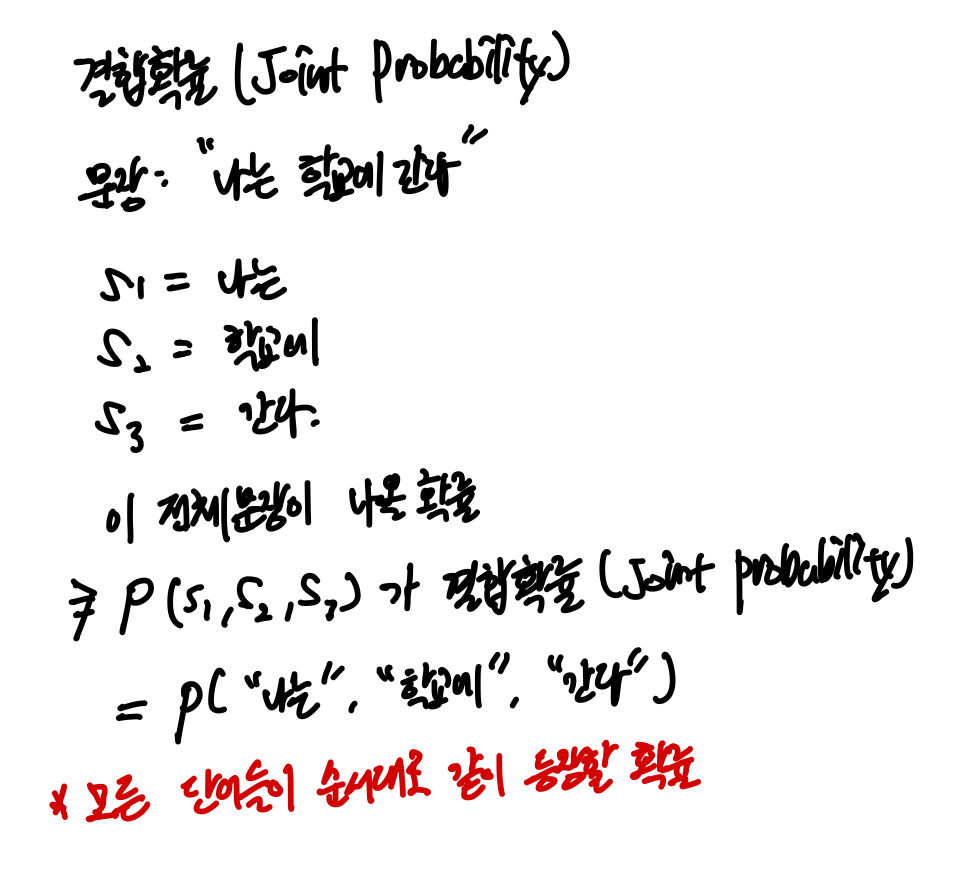 결합확률 (Joint Probability)
문장: "나는 학교에 간다"
S1 = 나는
S2 = 학교에
S3 = 간다.
이 전체문장이 나온 확률
⇒ P(S1, S2, S3) 가 결합확률 (Joint probability)
= P("나는", "학교에", "간다")
* 모든 단어들이 순서대로 같이 등장할 확률